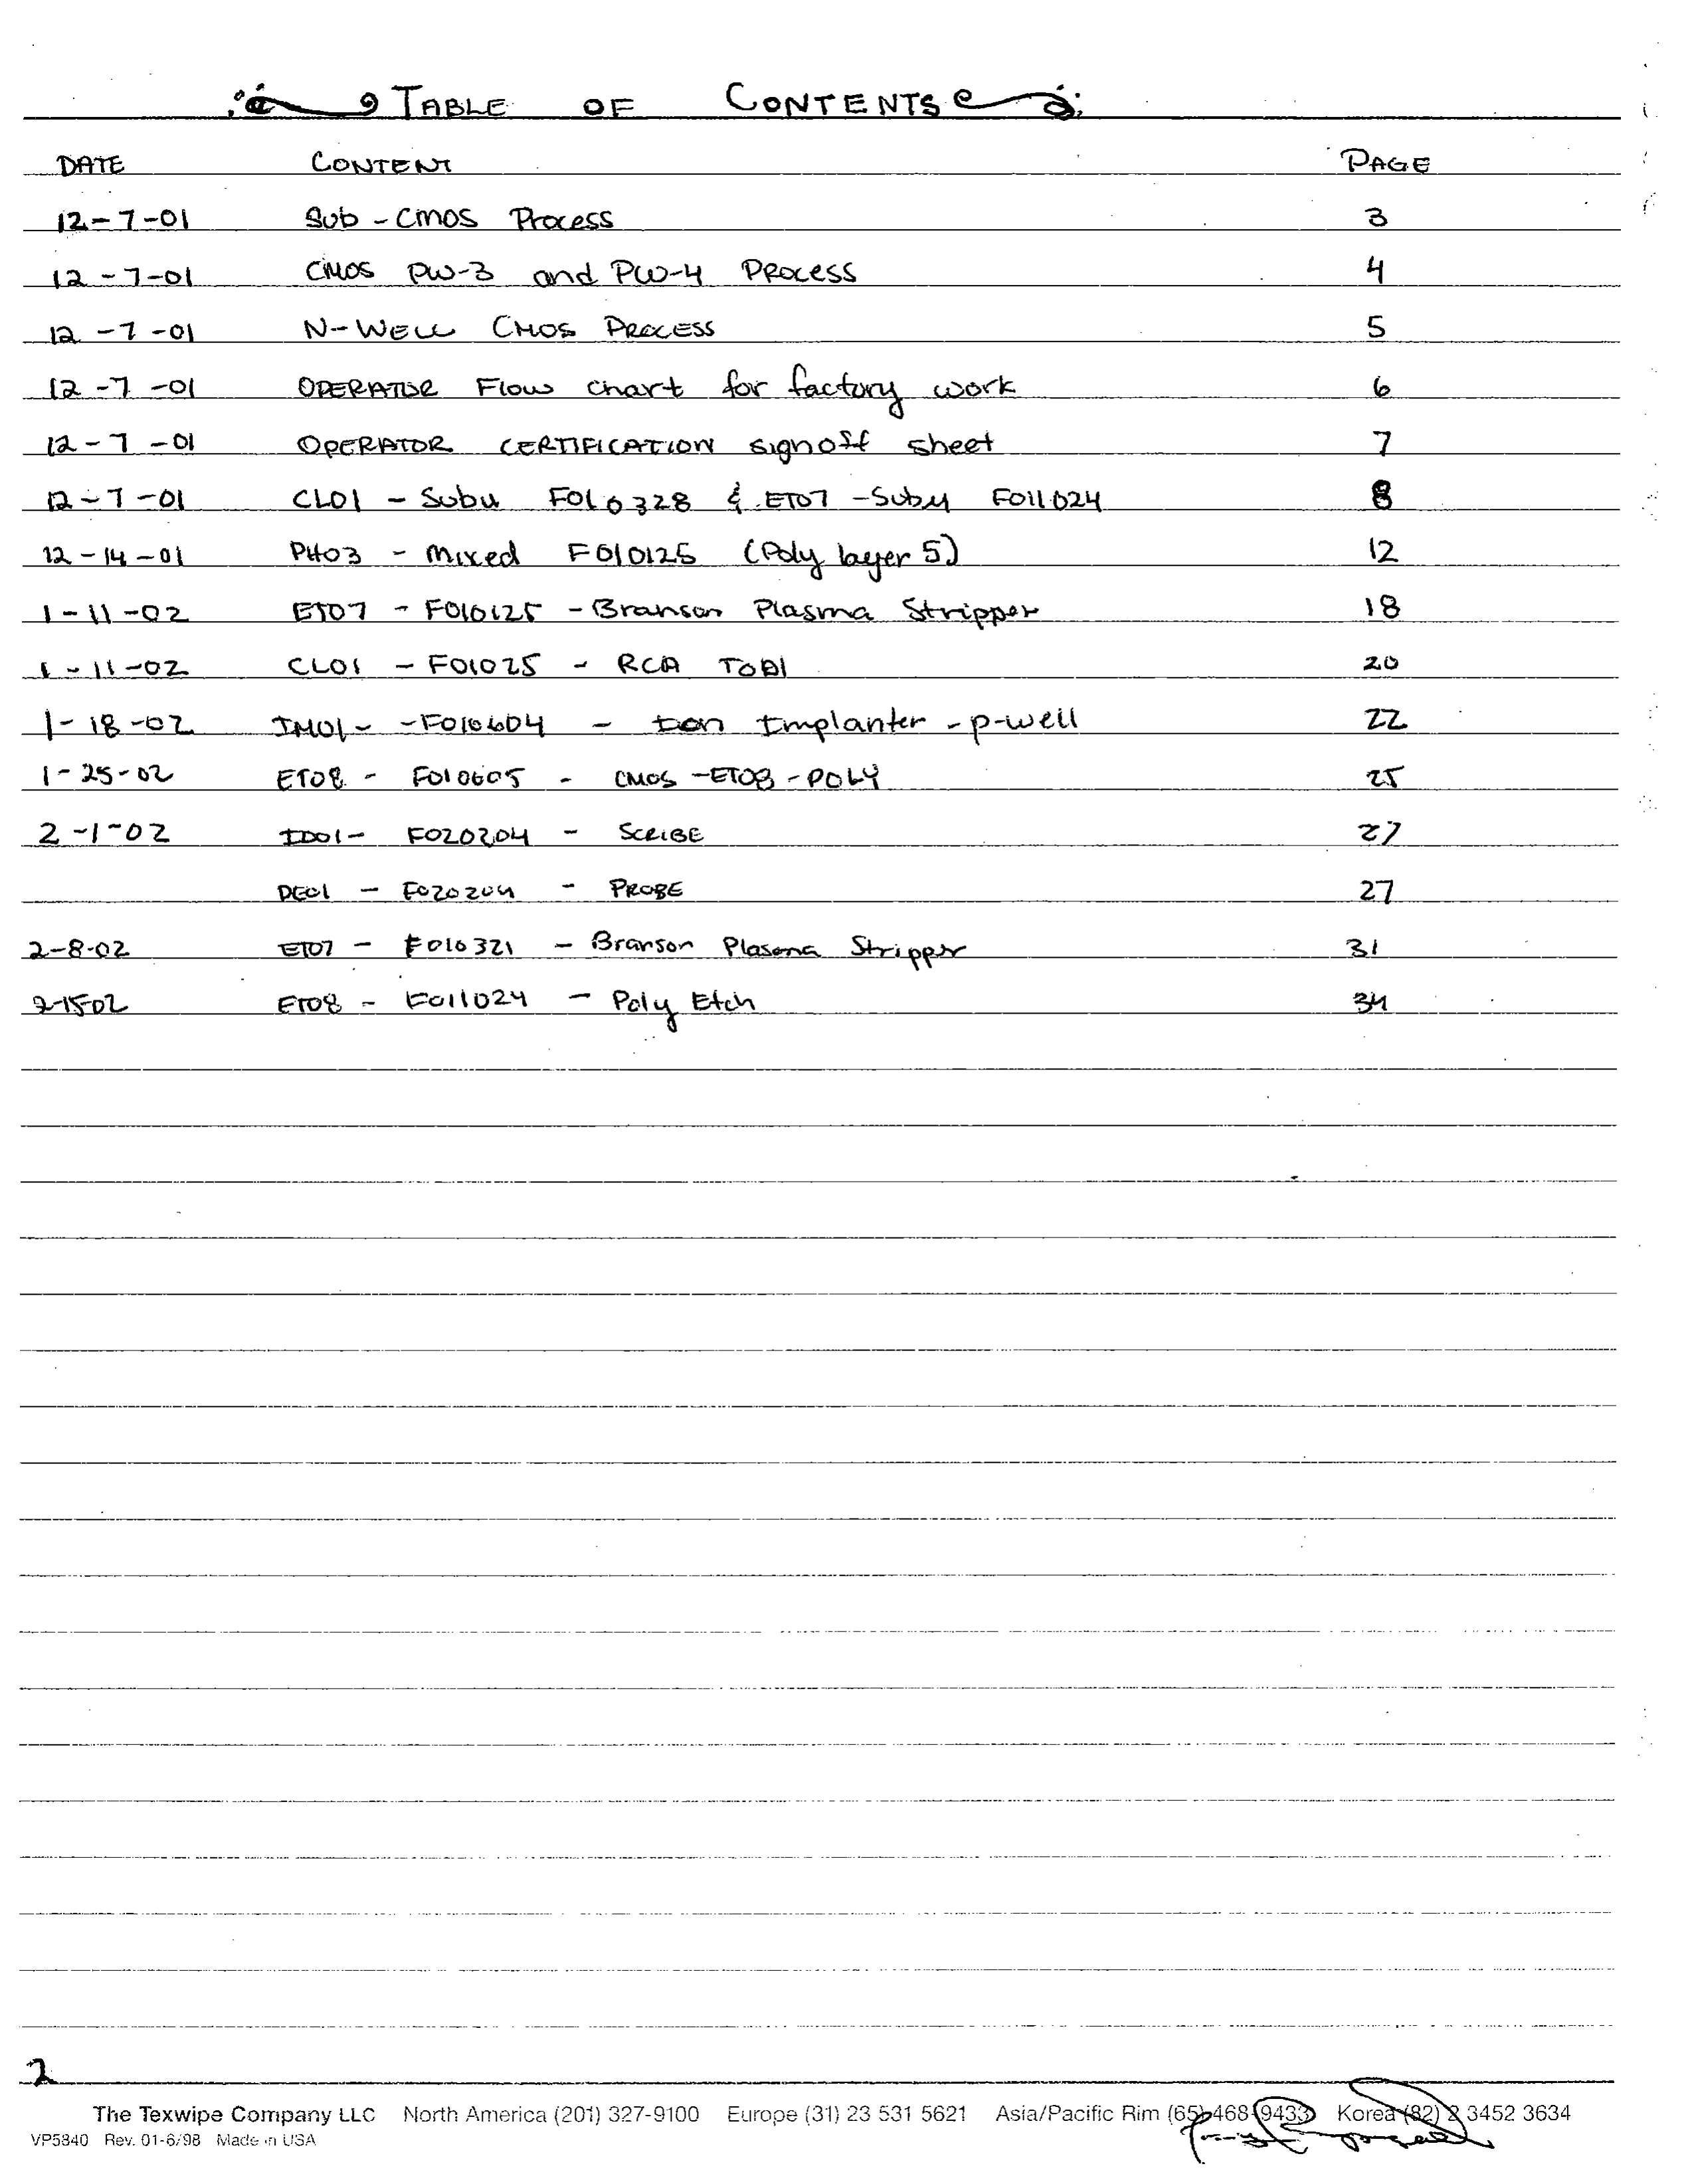 TABLE OF CONTENTS
DATE CONTENT PAGE
12-7-01 Sub-CMOS Process 3
12-7-01 CMOS PW-3 and PW-4 PROCESS 4
12-7-01 N-WELL CMOS PROCESS 5
12-7-01 OPERATOR Flow chart for factory work 6
12-7-01 OPERATOR CERTIFICATION signoff sheet 7
12-7-01 CL01 - Subu F010328 & ET07 - Subu F011024 8
12-14-01 PH03 - Mixed F010125 (Poly layer 5) 12
1-11-02 ET07 - F010125 - Branson Plasma Stripper 18
1-11-02 CL01 - F01025 - RCA 20
1-18-02 IM01- -F010604 - Ion Implanter - p-well 22
1-25-02 ET08 - F010605 - CMOS-ET08-POLY 25
2-1-02 ID01- F020204 - SCRIBE 27
DE01 - F020204 - PROBE 27
2-8-02 ET07 - F010321 - Branson Plasma Stripper 31
2-15-02 ET08 - F011024 - Poly Etch 34
2
The Texwipe Company LLC North America (201) 327-9100 Europe (31) 23 531 5621 Asia/Pacific Rim (65) 468-9433 Korea (82) 2 3452 3634
VP5840 Rev. 01-6/98 Made in USA